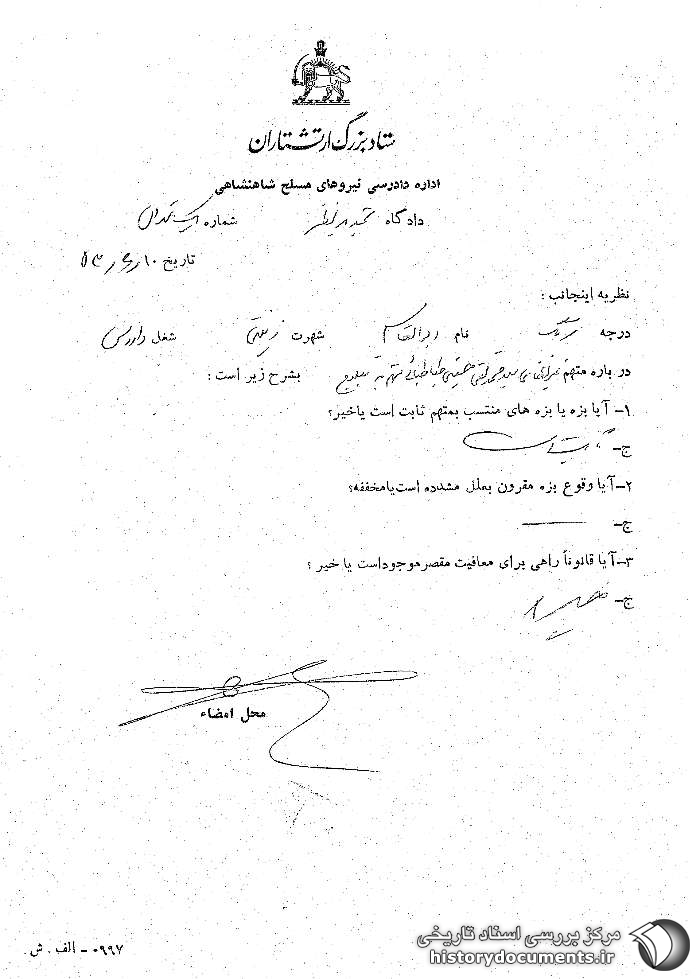 ستاد بزرگ ارتشتاران
اداره دادرسی نیروهای مسلح شاهنشاهی
دادگاه تجدیدنظر شماره یک تهران
تاریخ ۱۰/۶/۵۳
نظریه اینجانب :
درجه سرهنگ نام ابوالقاسم شهرت شغل دادرس
در باره متهم غیرنظامی سید محمدتقی حسینی طباطبائی متهم به بشرح زیر است :
۱- آیا بزه یا بزه های منتسب بمتهم ثابت است یاخیر؟
ج- ثابت است
۲- آیا وقوع بزه مقرون بعلل مشدده است یا مخففه؟
ج- ــــــ
۳- آیا قانوناً راهی برای معافیت مقصر موجود است یا خیر ؟
ج- خیر
محل امضاء
۰۹۹۷ - الف . ش .
مرکز بررسی اسناد تاریخی
historydocuments.ir